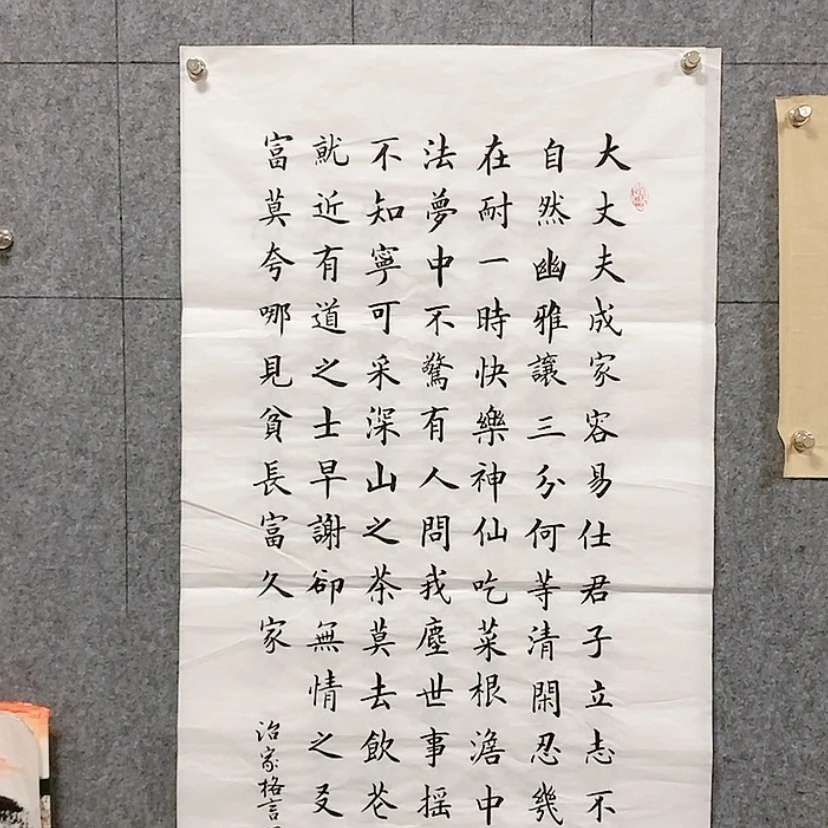 大丈夫成家容易仕君子立志不
自然幽雅讓三分何等清閑忍幾
在耐一時快樂神仙吃菜根澹中
法夢中不驚有人問我塵世事摇
不知寧可采深山之茶莫去飲花
就近有道之士早謝卻無情之友
富莫夸哪見貧長富久家
治家格言